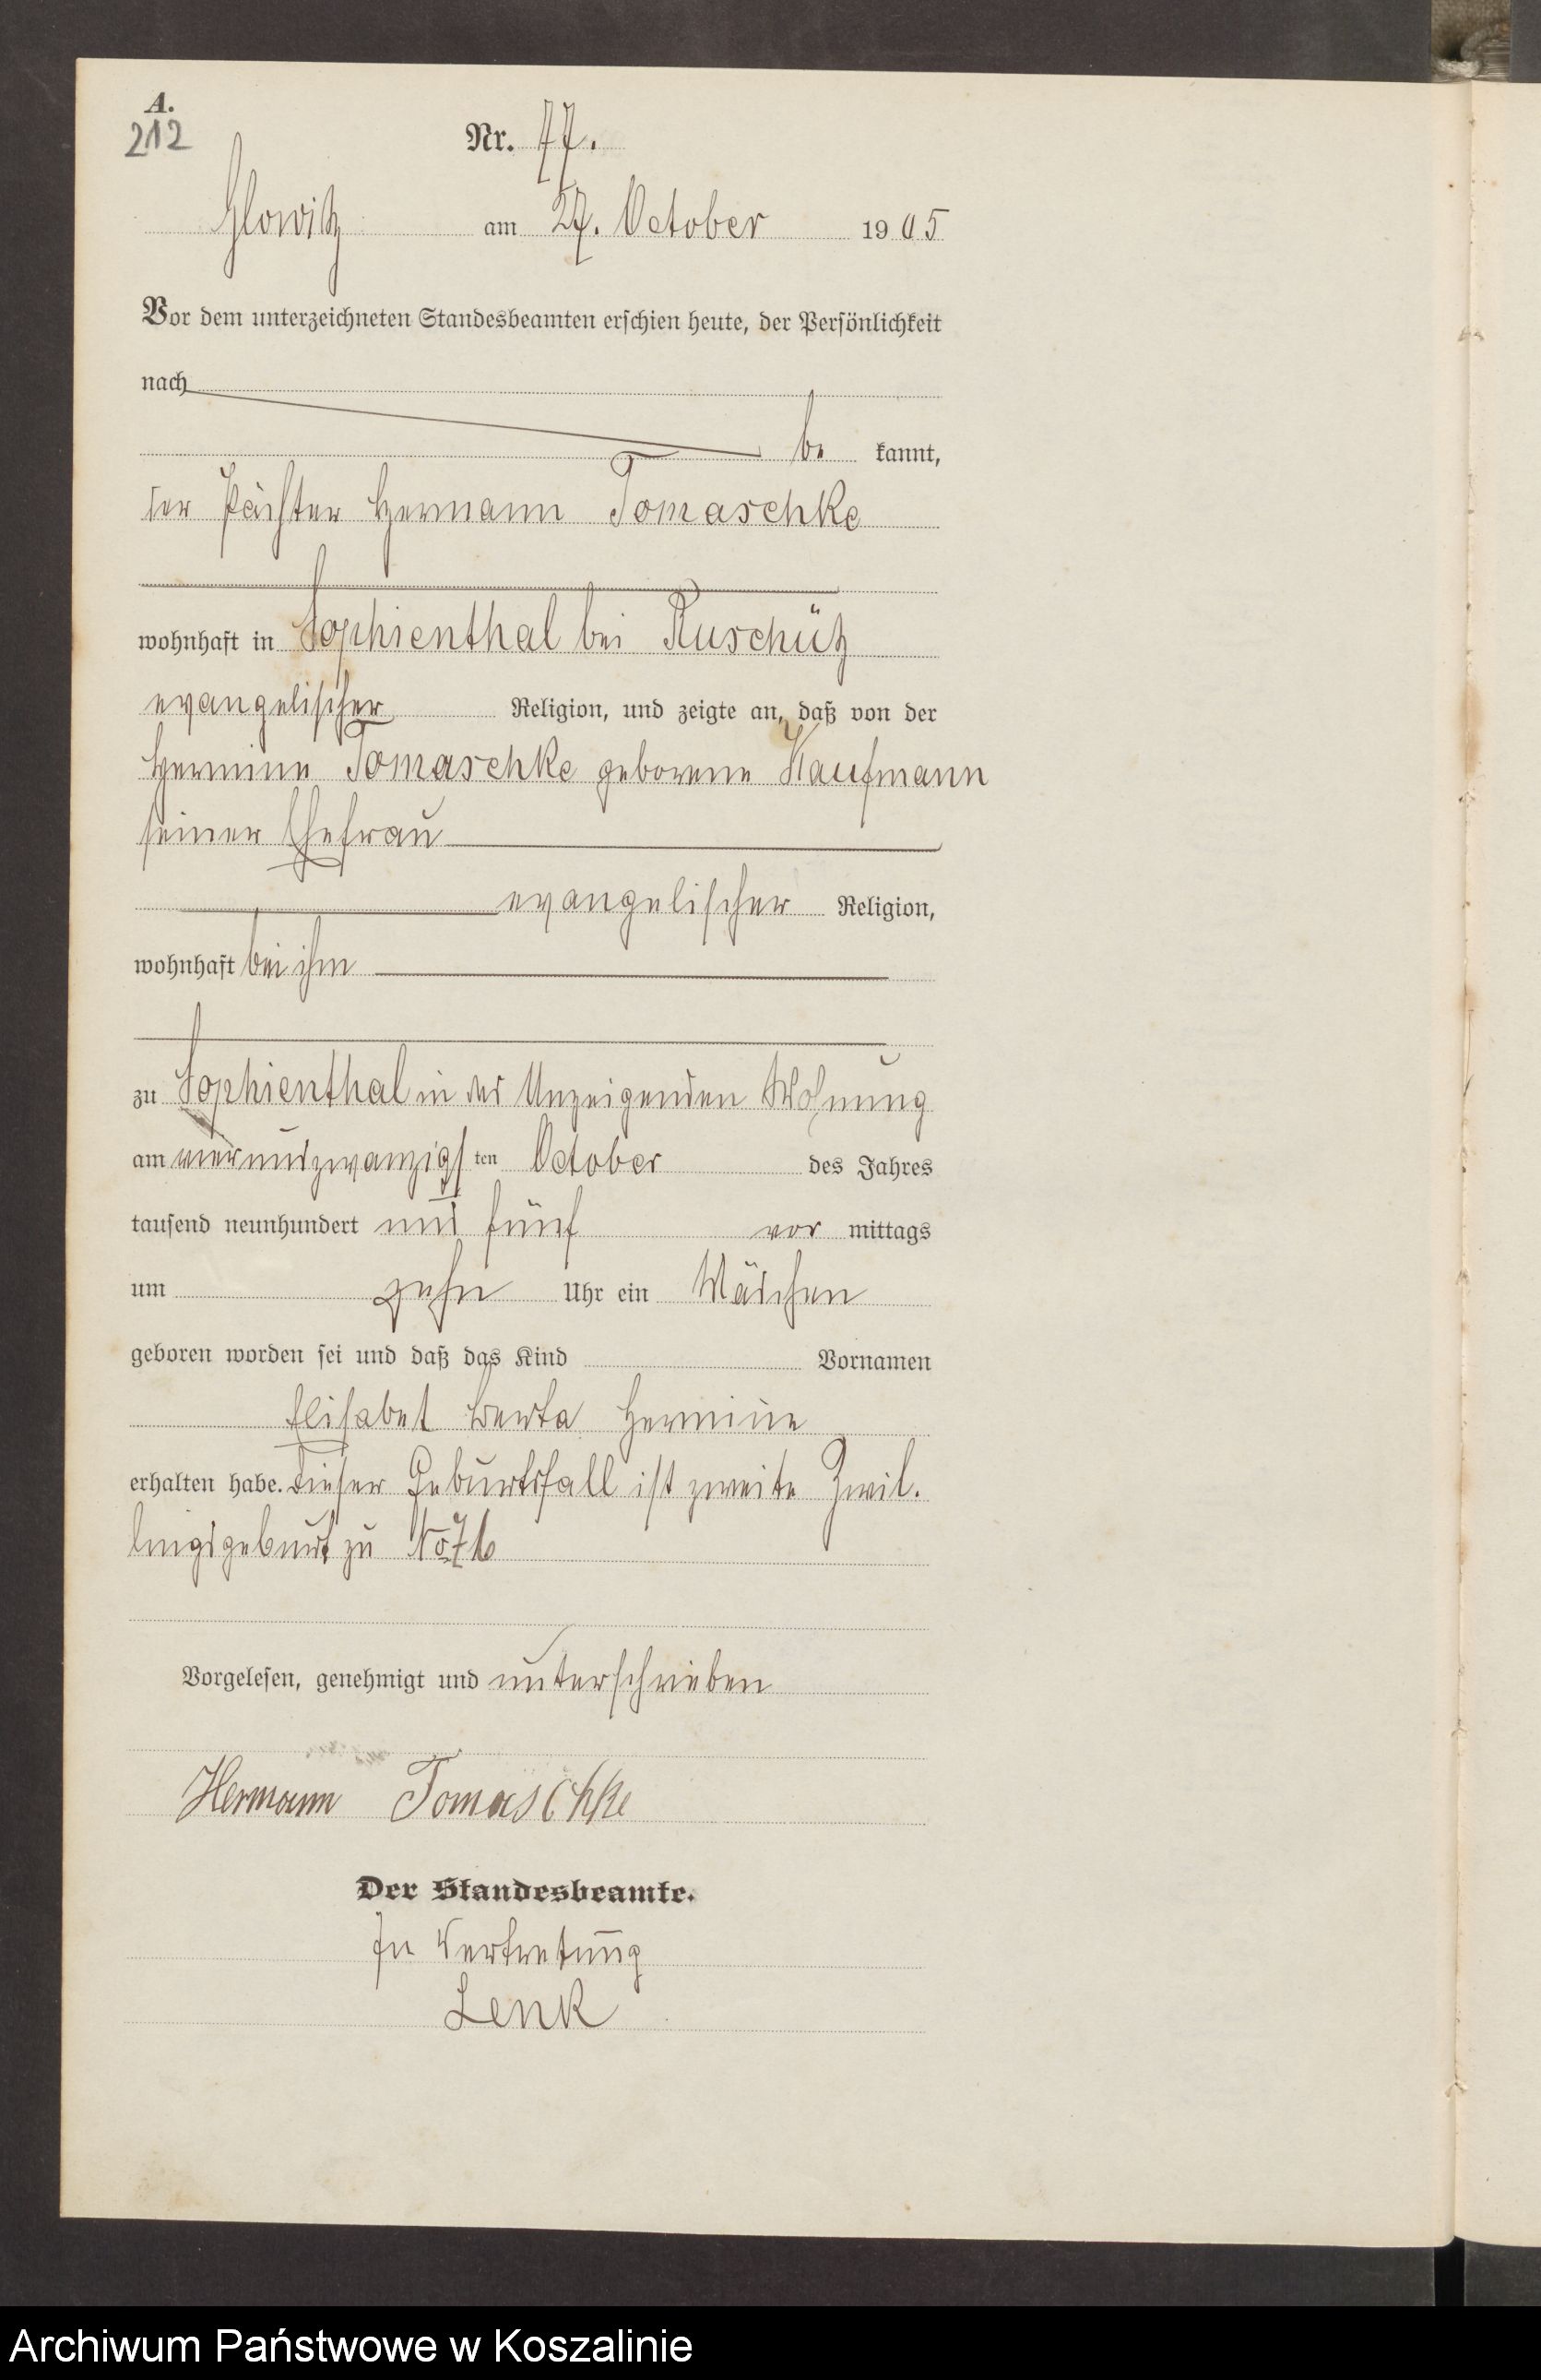 A.
212
Nr. 77.
Glowitz am 27. October 1905
Vor dem unterzeichneten Standesbeamten erschien heute, der Persönlichkeit
nach
be kannt,
der Pächter Hermann Tomaschke
wohnhaft in Sophienthal bei Ruschütz
evangelischer Religion, und zeigte an, daß von der
Hermine Tomaschke geborene Kaufmann
seiner Ehefrau
evangelischer Religion,
wohnhaft bei ihm
zu Sophienthal in des Anzeigenden Wohnung
am vierundzwanzigsten October des Jahres
tausend neunhundert und fünf vor mittags
um zehn Uhr ein Mädchen
geboren worden sei und daß das Kind Vornamen
Elisabet Berta Hermine
erhalten habe. Dieser Geburtsfall ist zweite Zwil.
lingsgeburt zu No 76
Vorgelesen, genehmigt und unterschrieben
Hermann Tomaschke
Der Standesbeamte.
In Vertretung
Lenk
Archiwum Państwowe w Koszalinie